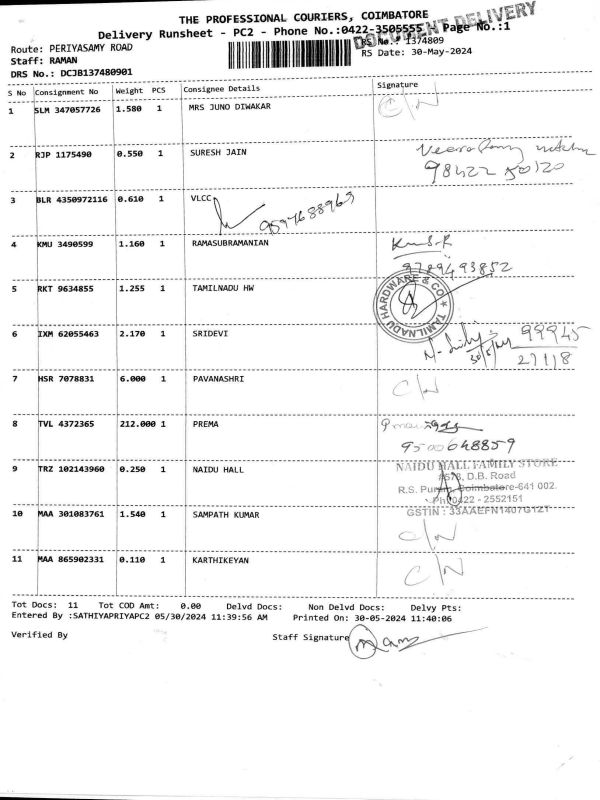 THE PROFESSIONAL COURIERS, COIMBATORE
Delivery Runsheet - PC2 - Phone No.:0422-3505555 Page No.:1
DOCUMENT DELIVERY
Route: PERIYASAMY ROAD
RS No.: 1374809
Staff: RAMAN
RS Date: 30-May-2024
DRS No.: DCJB137480901
S No Consignment No Weight PCS Consignee Details Signature
1 SLM 347057726 1.580 1 MRS JUNO DIWAKAR C/N
2 RJP 1175490 0.550 1 SURESH JAIN
98422 50120
3 BLR 4350972116 0.610 1 VLCC
9597688969
4 KMU 3490599 1.160 1 RAMASUBRAMANIAN
9789493852
5 RKT 9634855 1.255 1 TAMILNADU HW
TAMILNADU HARDWARE & CO
6 IXM 62055463 2.170 1 SRIDEVI 99945
30/5/24 27118
7 HSR 7078831 6.000 1 PAVANASHRI C/N
8 TVL 4372365 212.000 1 PREMA
9500648859
9 TRZ 102143960 0.250 1 NAIDU HALL NAIDU HALL FAMILY STORE
D.B. Road
R.S. Puram, Coimbatore-641 002.
Ph: 0422 - 2552151
GSTIN : 33AAEFN1407G1Z1
10 MAA 301083761 1.540 1 SAMPATH KUMAR C/N
11 MAA 865902331 0.110 1 KARTHIKEYAN C/N
Tot Docs: 11 Tot COD Amt: 0.00 Delvd Docs: Non Delvd Docs: Delvy Pts:
Entered By :SATHIYAPRIYAPC2 05/30/2024 11:39:56 AM Printed On: 30-05-2024 11:40:06
Verified By Staff Signature Raman